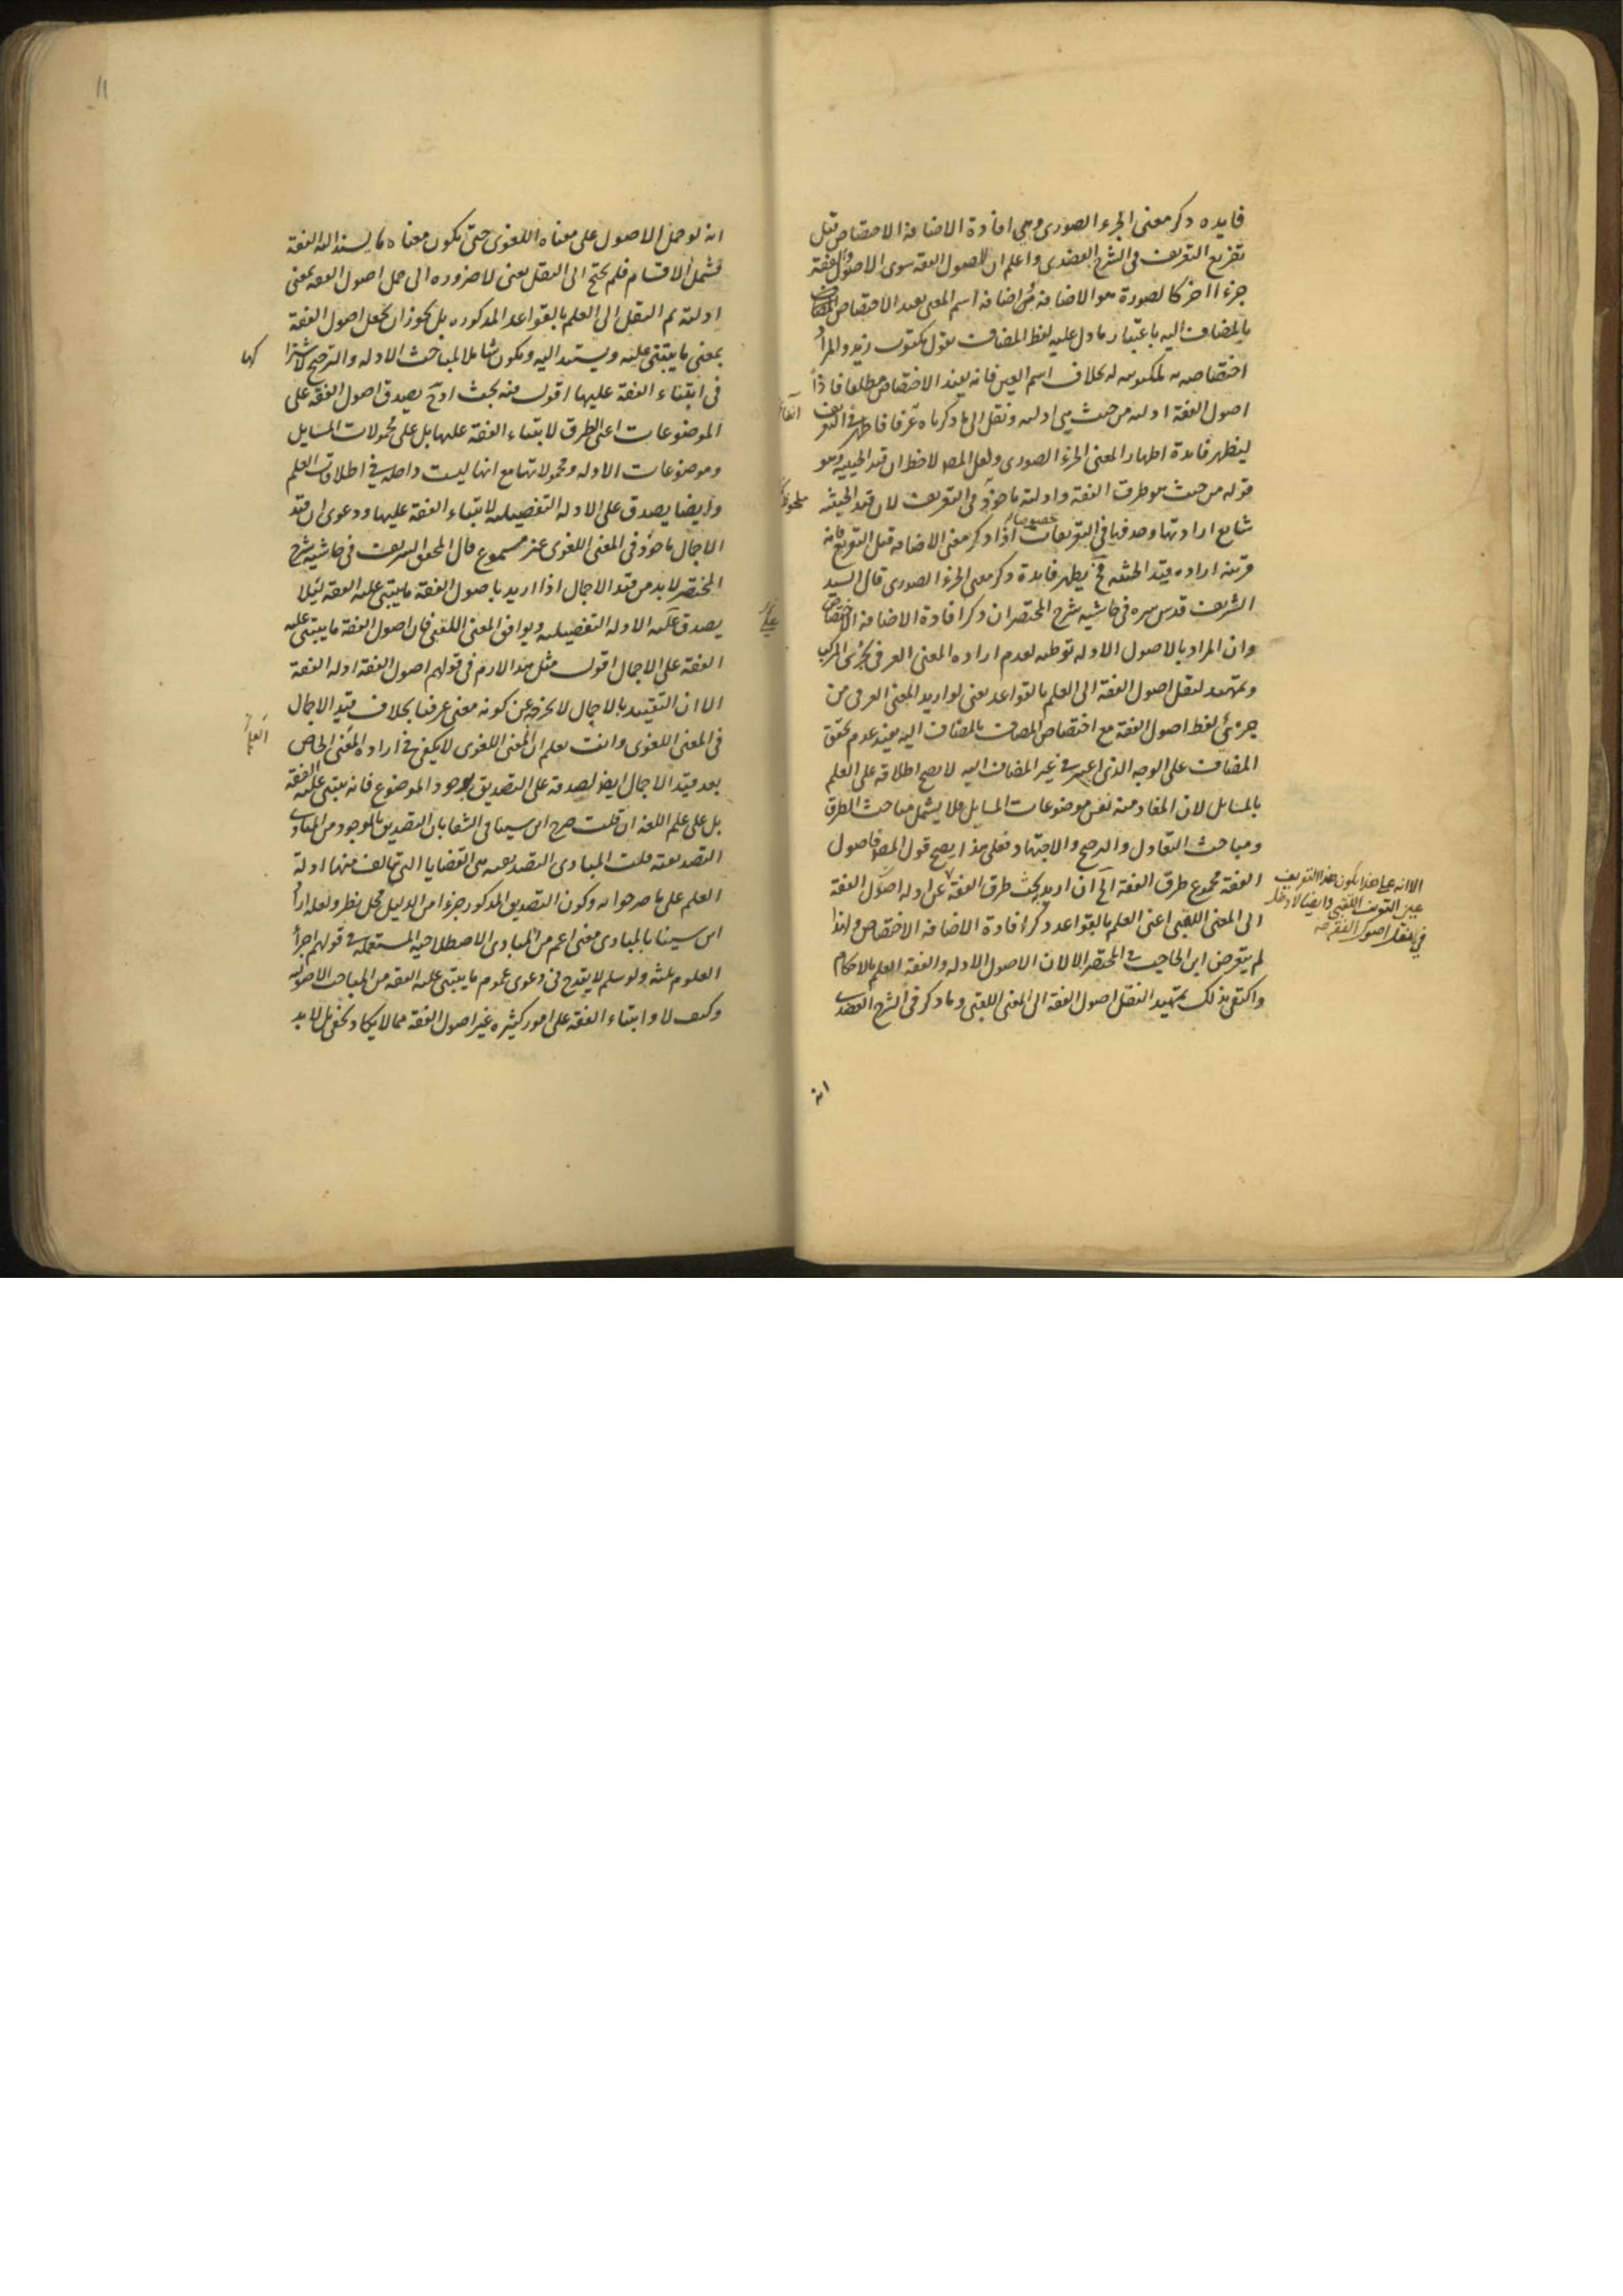 فايده ذكر معنى الجزء الصورى وهى افادة الاضافة الاختصاص قبل
تفريع التعريف فى الشرح العضدى واعلم ان لاصول الفقه سوى الاصول والفقه
جزءا اخر كالصورة هو الاضافة اضافة اسم المعنى يفيد الاختصاص المضاف
بالمضاف اليه باعتبار ما دل عليه لفظ المضاف تقول مكتوب زيد والمراد
اختصاصه به لمكتوبيته له بخلاف اسم العين فانه يفيد الاختصاص مطلقا فاذا
اصول الفقه ادلته من حيث هى ادلته ونقل الى ما ذكرناه عرفا فاظهر فى التعريف
ليظهر فايدة اظهار المعنى الجزء الصورى ولعل المص لاحظ ان قيد الحيثية وهو
قوله من حيث هو طرق الفقه وادلته ماخوذ فى التعريف لان قيد الحيثية
ملحوظ
شايع ارادتها وحذفها فى التعريفات خصوصا اذا ذكر معنى الاضافة قبل التفريع فانه
قرينة اراده قيد الحيثية فح يظهر فايدة ذكر معنى الجزء الصورى قال السيد
الشريف قدس سره فى حاشيه شرح المختصر ان ذكر افادة الاضافة الاختصاص
وان المراد بالاصول الادله توطئه لعدم اراده المعنى العرفى بجزئى المركب
وتمهيد لنقل اصول الفقه الى العلم بالقواعد يعنى لو اريد المعنى العرفى من
جزئى لفظ اصول الفقه مع اختصاص المضاف بالمضاف اليه يفيد عدم تحقق
المضاف على الوجه الذى اعتبر فى غير المضاف اليه لا يصح اطلاقه على العلم
بالمسايل لان المفاد منه نفس موضوعات المسايل فلا يشمل مباحث الطرق
ومباحث التعادل والترجيح والاجتهاد فعلى هذا يصح قول المص فاصول
الفقه مجموع طرق الفقه الى ان اريد بحث طرق الفقه عن ادله اصول الفقه
الى المعنى اللقبى اعنى العلم بالقواعد ذكر افادة الاضافة الاختصاص ولذا
لم يتعرض ابن الحاجب فى المختصر الا لان الاصول الادله والفقه العلم بالاحكام
واكتفى بذلك تمهيد النقل اصول الفقه الى المعنى اللقبى وما ذكر فى الشرح العضدى
الا انه على هذا يكون هذا التعريف
عين التعريف اللقبى وايضا لا دخل
فى نقل اصول الفقه منه
انه
انه لو حمل الاصول على معناه اللغوى حتى يكون معناه ما يستند اليه الفقه
فشمل الاقسام فلم يحتج الى النقل يعنى لا ضروره الى حمل اصول الفقه بمعنى
ادلته ثم النقل الى العلم بالقواعد المذكوره بل يجوز ان يجعل اصول الفقه
بمعنى ما يبتنى عليه ويستند اليه ويكون شاملا لمباحث الادله والترجيح لاشترا
كها
فى ابتناء الفقه عليها اقول فيه بحث اذ ح يصدق اصول الفقه على
الموضوعات اعنى الطرق لابتناء الفقه عليها بل على محمولات المسايل
وموضوعات الادله ومحمولاتها مع انها ليست داخلة فى اطلاقات العلم
وايضا يصدق على الادله التفصيلية لابتناء الفقه عليها ودعوى ان قيد
الاجمال ماخوذ فى المعنى اللغوى غير مسموع قال المحقق الشريف فى حاشيه شرح
المختصر لا بد من قيد الاجمال اذا اريد باصول الفقه ما يبتنى عليه الفقه لئلا
يصدق على الادله التفصيلية ويوافق المعنى اللقبى فان اصول الفقه ما يبتنى عليه
الفقه على الاجمال اقول مثل هذا لازم فى قولهم اصول الفقه ادله الفقه
الا ان التقييد بالاجمال لا يخرجه عن كونه معنى عرفيا بخلاف قيد الاجمال
فى المعنى اللغوى وانت تعلم ان المعنى اللغوى لا يكفى فى اراده المعنى الخاص
بعد قيد الاجمال ايضا لصدقه على التصديق بوجود الموضوع فانه يبتنى عليه الفقه
بل على علم اللغه ان قلت صرح ابن سينا فى الشفا بان التصديق بالموجود من المبادى
التصديقية قلت المبادى التصديقية هى القضايا التى تتالف منها ادلة
العلم على ما صرحوا به وكون التصديق المذكور جزءا من الدليل محل نظر ولعله اراد
ابن سينا بالمبادى معنى اعم من المبادى الاصطلاحية المستعملة فى قولهم اجزاء
العلوم ثلثه ولو سلم لا يقدح فى دعوى عموم ما يبتنى عليه الفقه من المباحث الاصوليه
وكيف لا وابتناء الفقه على امور كثيره غير اصول الفقه مما لا يكاد يخفى بل لا بد